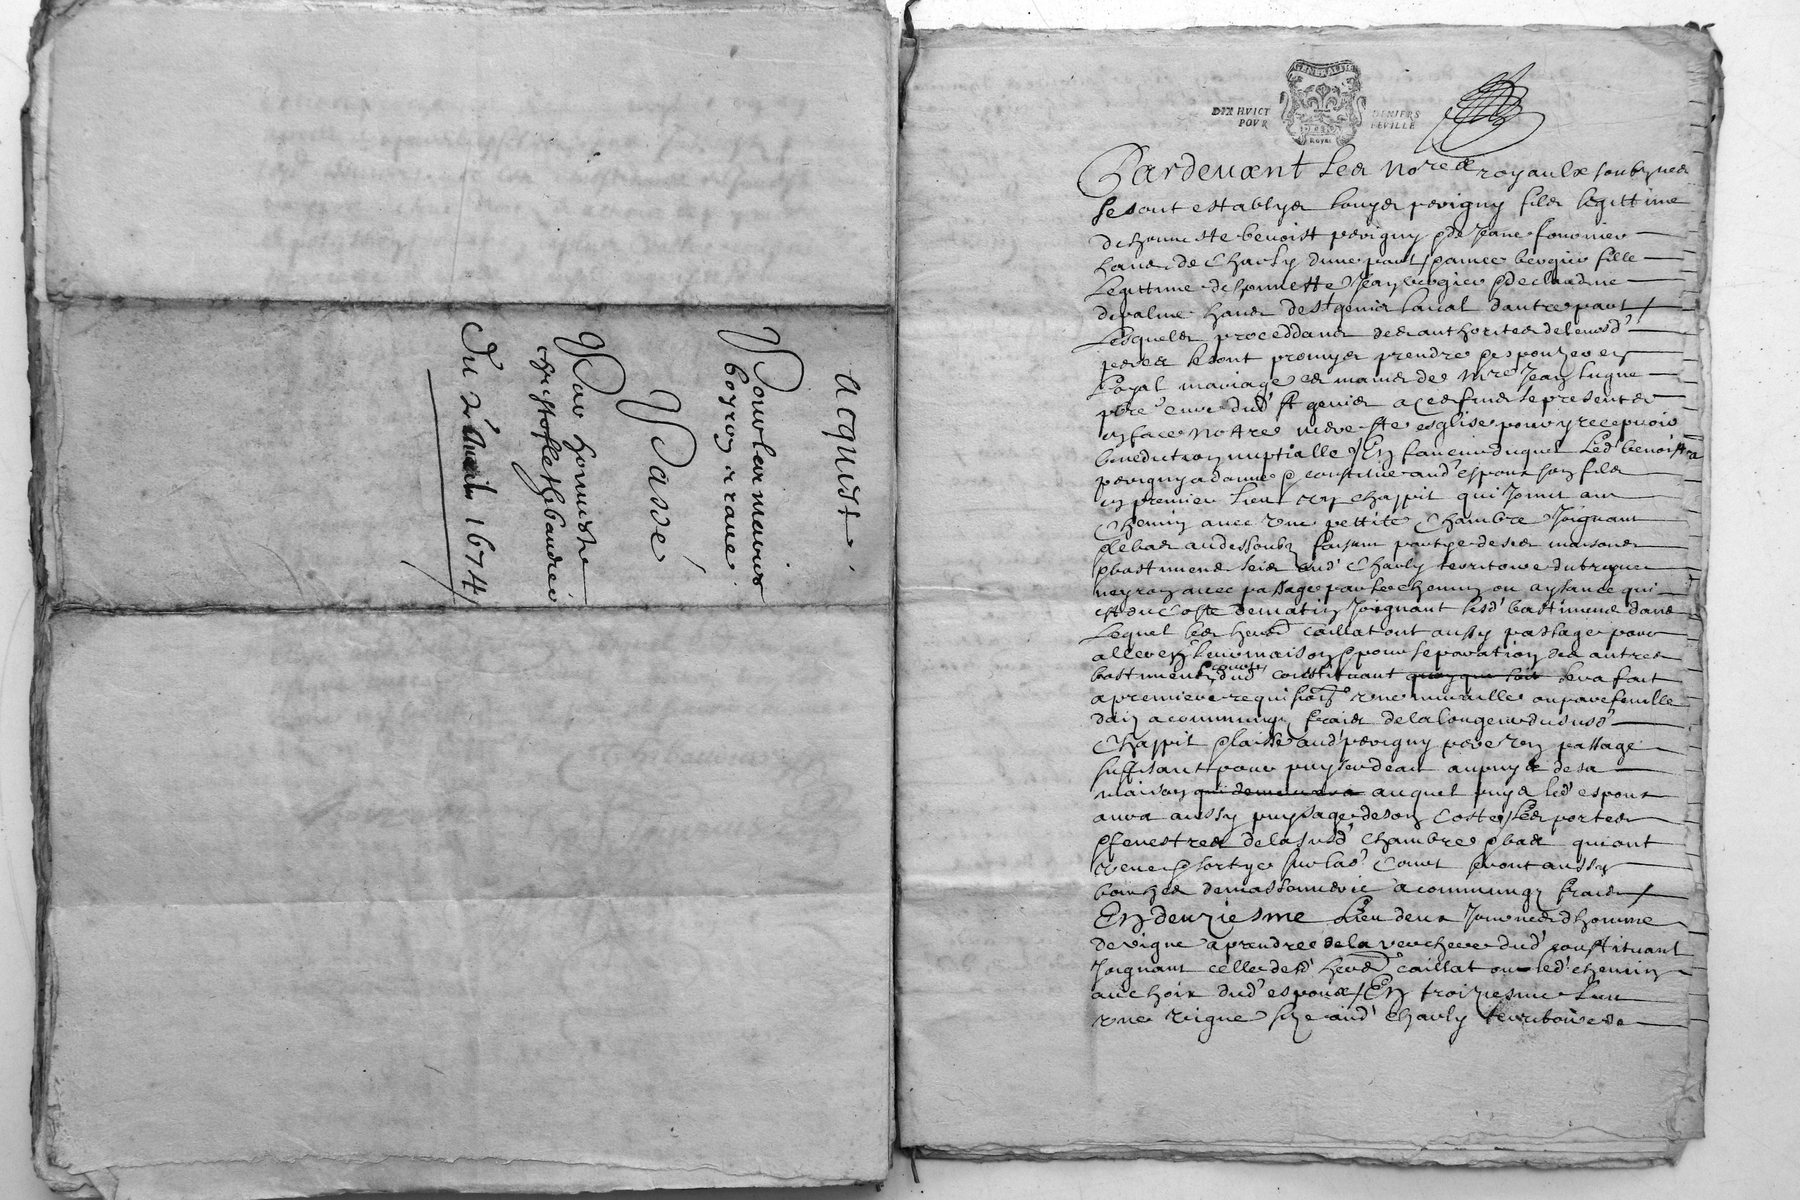 acquist
Pour les mineurs
boyron a rane
Passé
Par honneste
christofle thibaudier
du 2 Avril 1674
GENERALITE
DIX HVICT DENIERS
POVR FEVILLE
Pardevant Les No.res royaulx soubzsignes
se sont establyes Louys perigny filz legittime
de honneste benoist perigny & de Jeane fournier
hans de Charly dune part / &
Legittime de honneste Jean & de claudine
hans de St genis laval dautre part /
Lesquels proceddans des authorites de leursd'
peres se sont promys prendre & espouzer en
Loyal mariage es mains de m.re Jean
p.bre cure dud' St genis a ces fins se presenter
en face nostre mere Ste esglise pour y recepvoir
benediction nuptialle / En faveur duquel Led' benoist
perigny a donne & constitue aud' espoux son filz
en premier Lieu un chappit qui Joint au
Chemin avec une pettite Chambre Joignant
& le bas au dessoubz faisant partye de ses maisons
& bastimens seis aud' Charly territoire du
avec passage par Le chemin ou aysance qui
est du Coste de matin Joignant lesd' bastimens dans
Lequel les her.s caillat ont aussy passage pour
aller en leur maison & pour separation des autres
bastimens dud' constituant sera fait
a premiere requisition une muraille ou parefeuille
dain a commungz fraiz de la longeur du susd'
Chappit & laisse aud' perigny pere un passage
suffisant pour puyser deau au puys de sa
maison qui demeurera auquel puys led' espoux
aura aussy puysage de son Coste / Les portes
& fenestres de la susd' Chambre & bas qui ont
veue & sortye sur lad' Court seront aussy
bouchees de massonnerie a commungz fraiz /
En deuziesme Lieu deux Journees dhomme
de vigne a prendre de la verchere dud' constituant
Joignant celle desd' her.s caillat ou led' chemin
au choix dud' espoux / En troiziesme Lieu
une vigne size aud' Charly territoire de